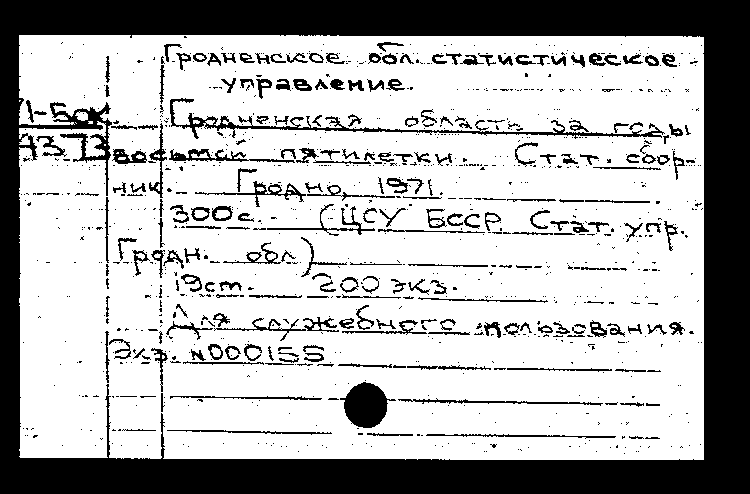 Гродненское обл. статистическое
управление.
71-5ок.
4373
Гродненская область за годы
восьмой пятилетки. Стат. сбор-
ник. Гродно, 1971.
300с. (ЦСУ БССР. Стат. упр.
Гродн. обл)
19см. 200 экз.
Для служебного пользования.
Экз. №000155